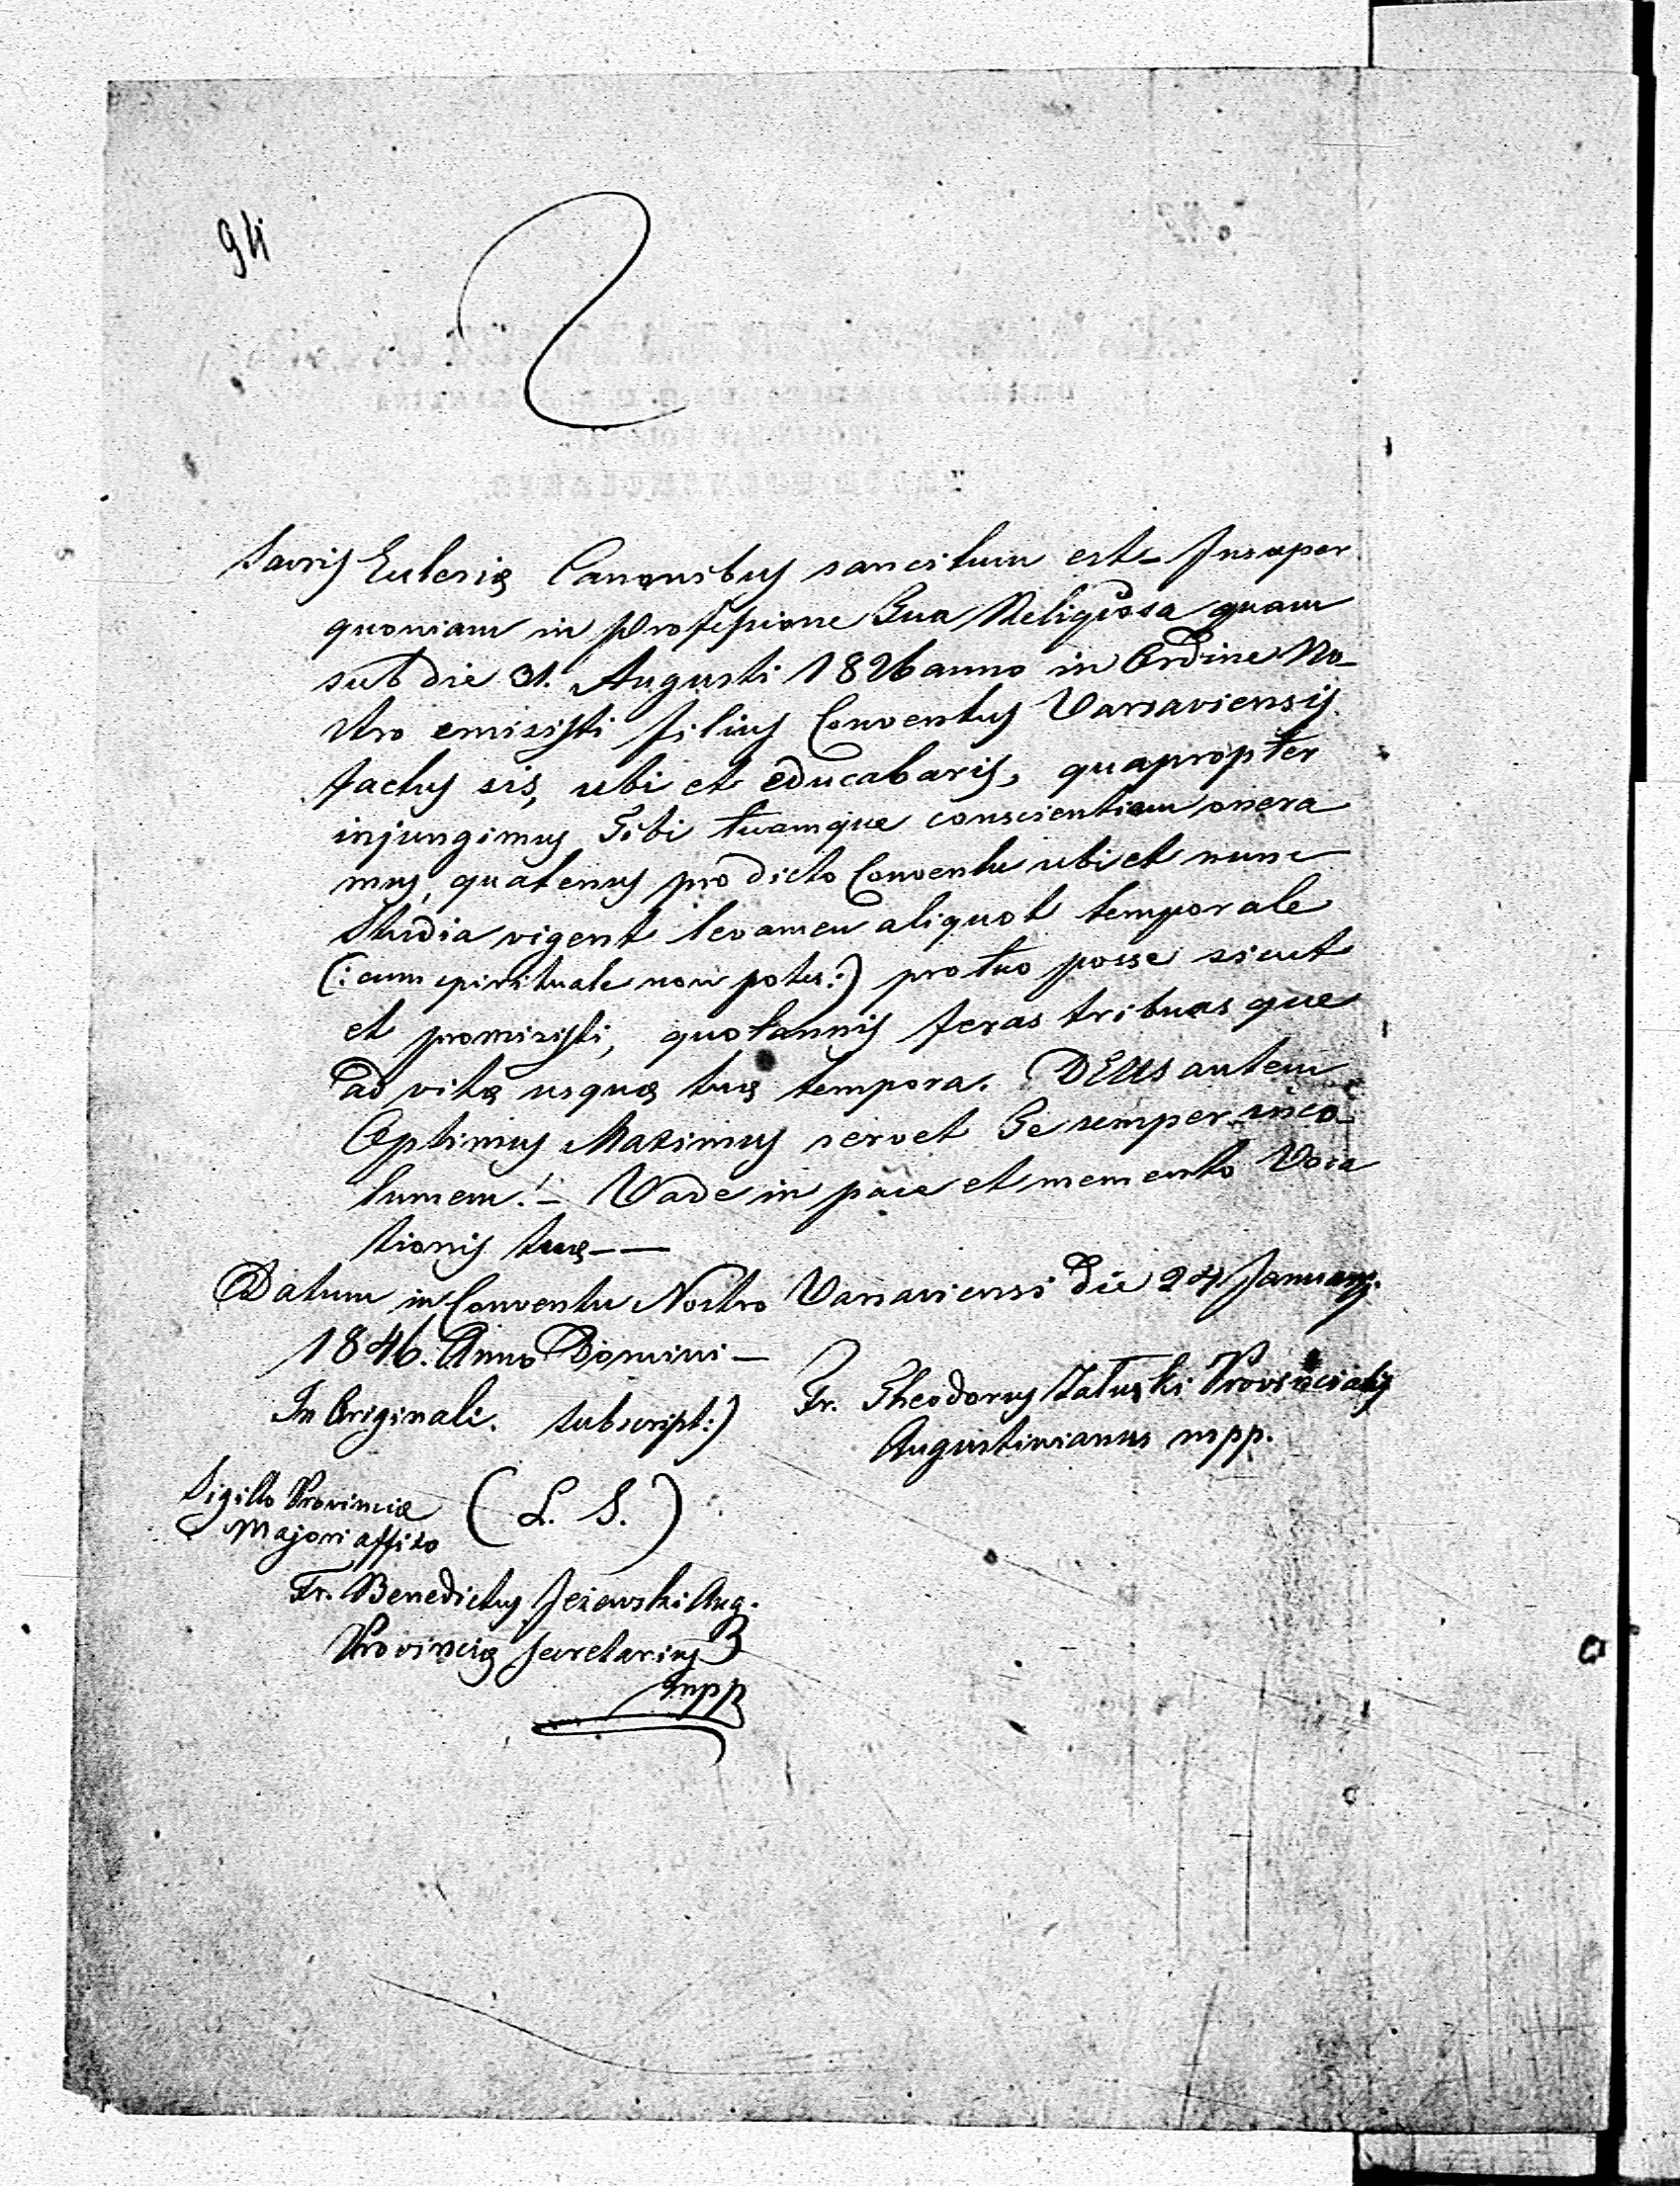 94
Sacris Eclesiæ Canonibus sancitum est – Insuper
quoniam in professione Tua Religiosa quam
sub die 31. Augusti 1826 anno in Ordine No-
stro emisisti filius Conventus Varsaviensis
factus sis, ubi et educabaris, quapropter
injungimus Tibi tuamque conscientiam onera
mus, quatenus pro dicto Conventu ubi et nunc
Studia vigent levamen aliquot temporale
(: cum spirituale non potes :) pro tuo posse sicut
et promisisti, quotannis feras tribuas que
ad vitæ usquæ tuæ tempora. DEUS autem
Optimus Maximus servet Te semper inco-
lumem! – Vade in pace et memento Voca
tionis tuæ – –
Datum in Conventu Nostro Varsaviensi die 24 Januarij.
1846. Anno Domini –
In Originali. subscript:) Fr. Theodorus Załuski Provincialis
Augustinianus mpp.
Sigillo Provinciæ (L. S.)
Majori affixo
Fr. Benedictus Jeżewski Aug.
Provinciæ Secretarius
mpp